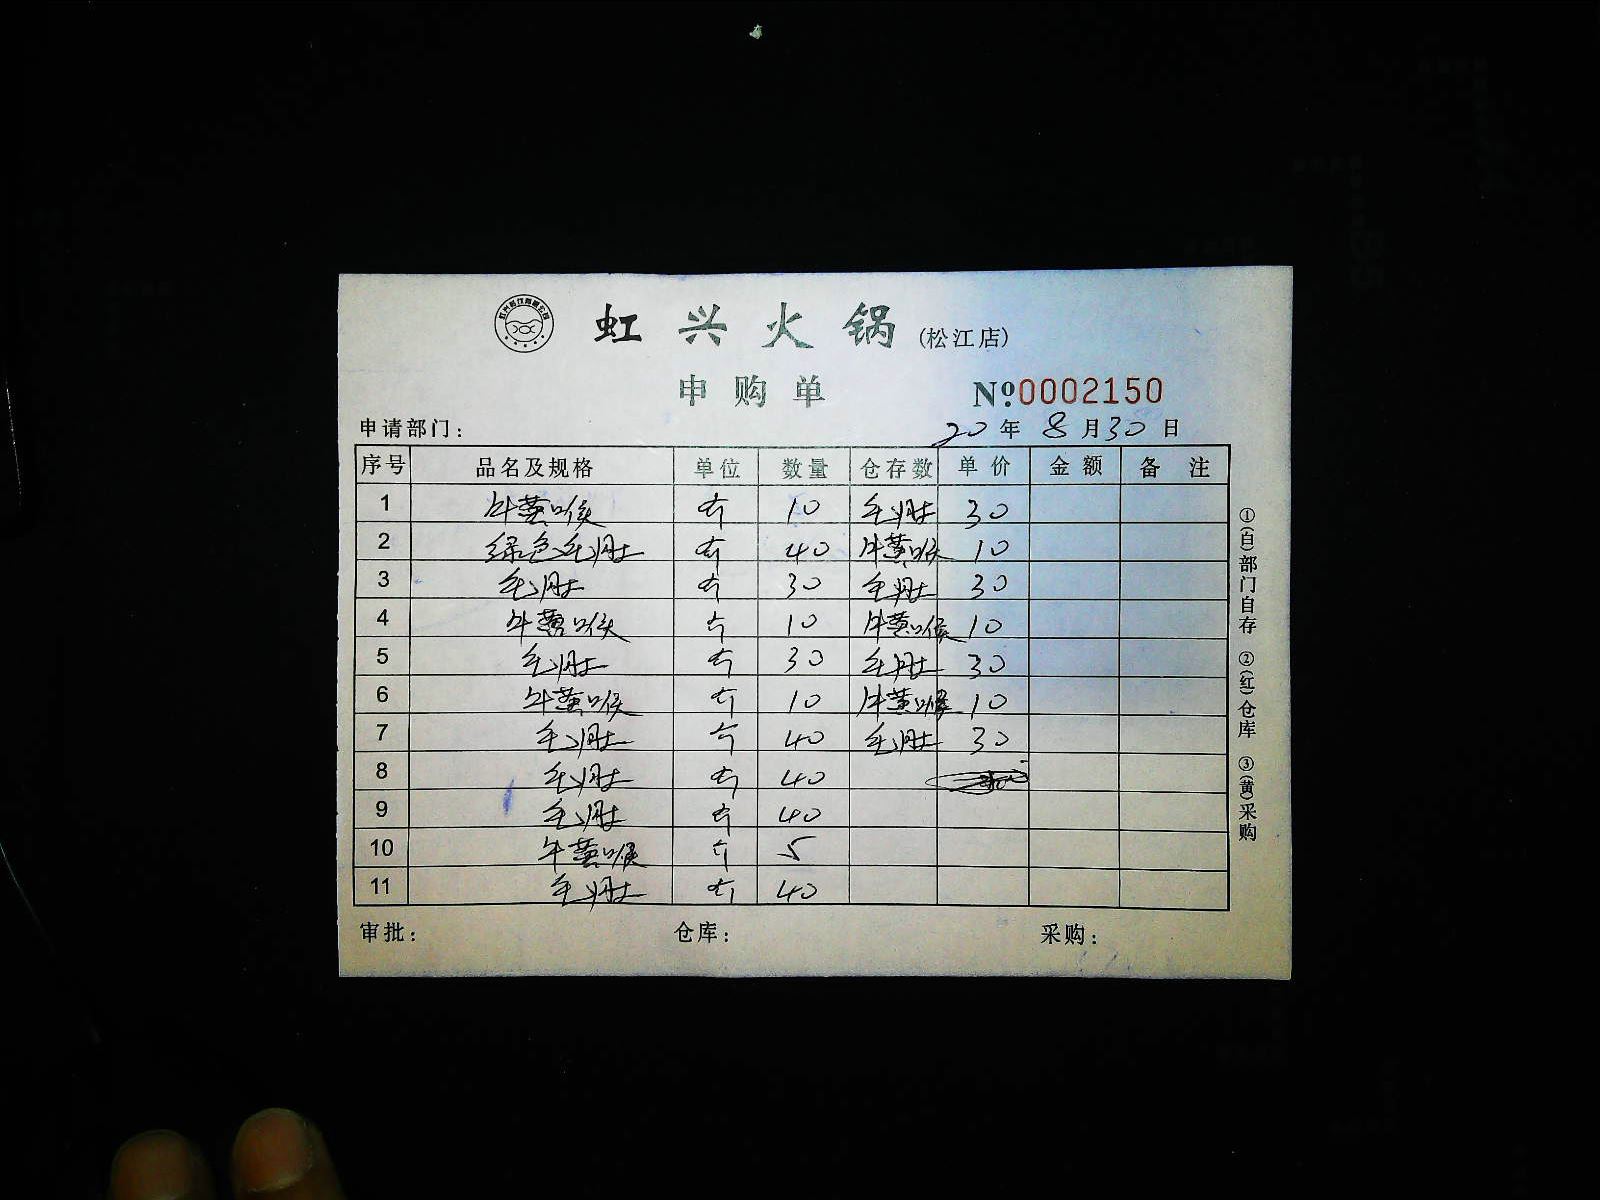 虹兴火锅(松江店)
申购单 №0002150
申请部门: 20年8月30日
序号 品名及规格 单位 数量 仓存数 单价 金额 备注
1 牛黄喉 斤 10 毛肚 30
2 绿色毛肚 斤 40 牛黄喉 10
3 毛肚 斤 30 毛肚 30
4 牛黄喉 斤 10 牛黄喉 10
5 毛肚 斤 30 毛肚 30
6 牛黄喉 斤 10 牛黄喉 10
7 毛肚 斤 40 毛肚 30
8 毛肚 斤 40
9 毛肚 斤 40
10 牛黄喉 斤 5
11 毛肚 斤 40
审批: 仓库: 采购:
①(白)部门自存 ②(红)仓库 ③(黄)采购